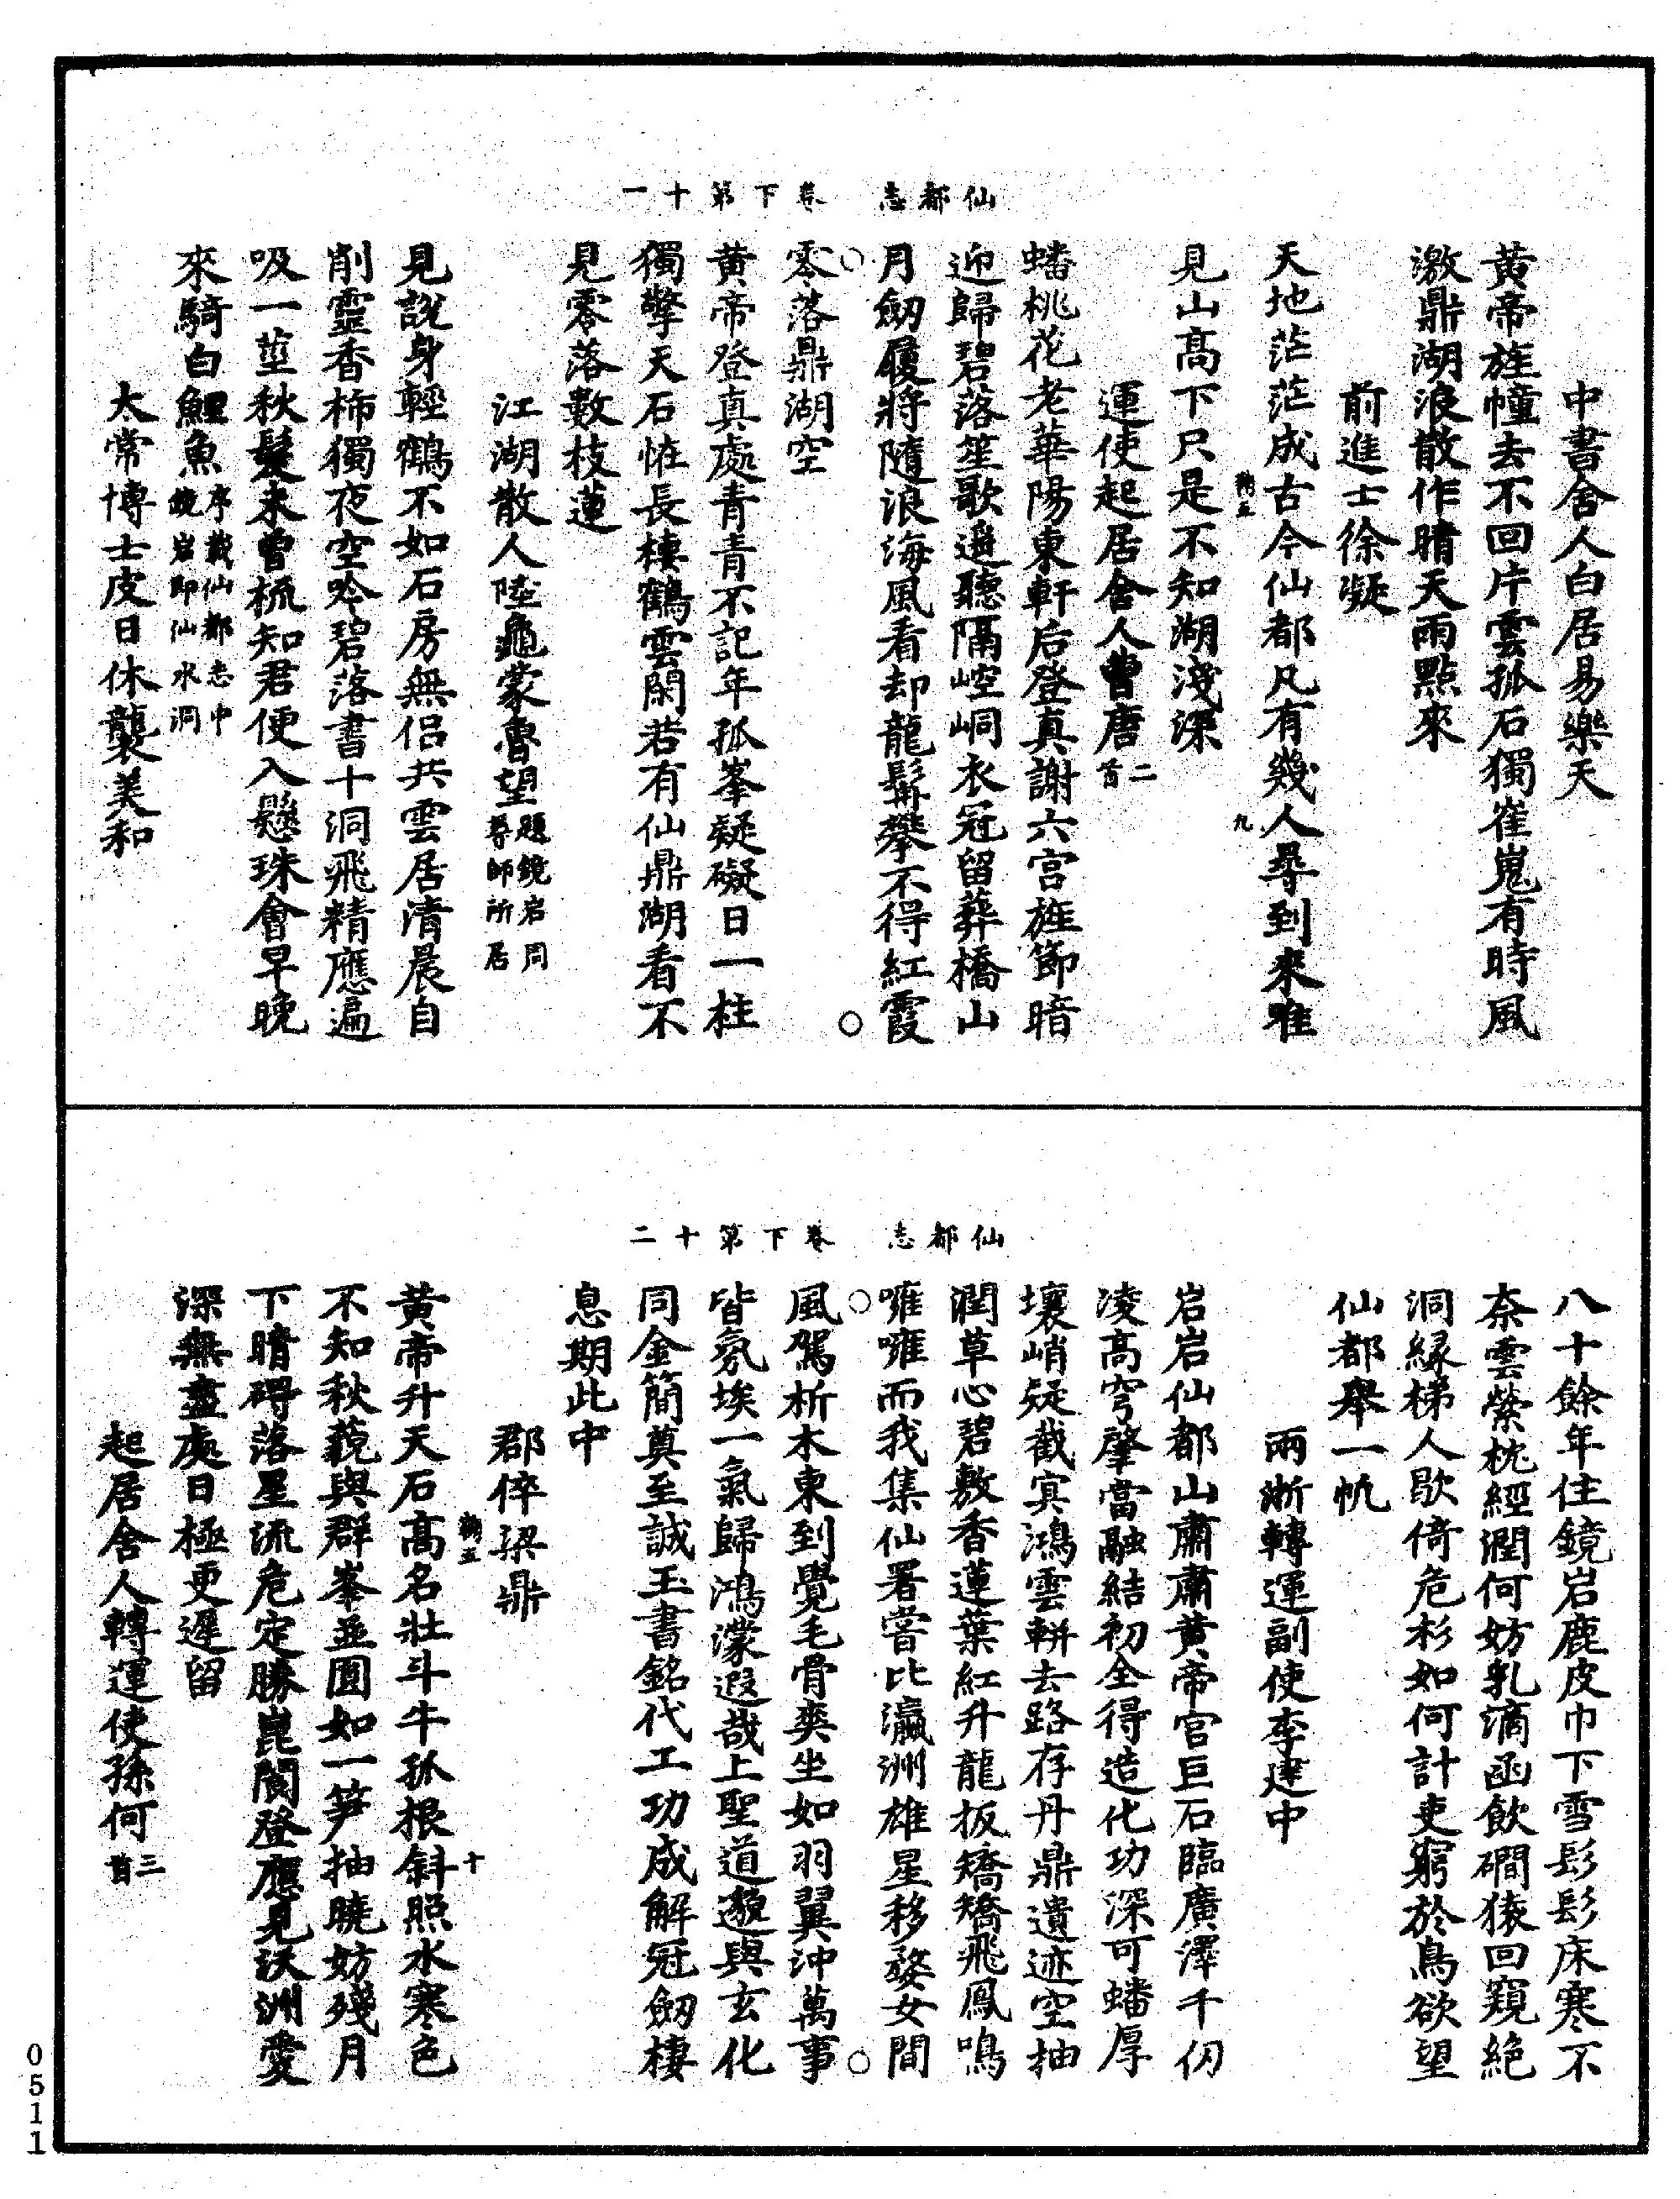 仙都志　卷下第十一
中書舍人白居易樂天
黃帝旌幢去不回片雲孤石獨崔嵬有時風
激鼎湖浪散作晴天雨點來
前進士徐凝
天地茫茫成古今仙都凡有幾人尋到來唯
九
見山高下只是不知湖淺深
運使起居舍人曹唐二首
蟠桃花老華陽東軒后登真謝六宮旌節暗
迎歸碧落笙歌遥聽隔崆峒衣冠留葬橋山
月劒履將隨浪海風看却龍髯攀不得紅霞
零落鼎湖空
黃帝登真處青青不記年孤峯疑礙日一柱
獨擎天石恠長棲鶴雲閑若有仙鼎湖看不
見零落數枝蓮
江湖散人陸龜蒙魯望題鏡岩周尊師所居
見說身輕鶴不如石房無侣共雲居清晨自
削靈香柿獨夜空吟碧落書十洞飛精應遍
吸一莖秋髮未曾梳知君便入懸珠會早晚
來騎白鯉魚序載仙都志中鏡岩即仙水洞
太常博士皮日休襲美和
仙都志　卷下第十二
八十餘年住鏡岩鹿皮巾下雪髟髟床寒不
柰雲縈枕經潤何妨乳滴函飲磵猿回窺絶
洞緣梯人歇倚危杉如何計吏窮於鳥欲望
仙都舉一帆
兩浙轉運副使李建中
岩岩仙都山肅肅黃帝宮巨石臨廣澤千仞
凌高穹肇當融結初全得造化功深可蟠厚
壤峭疑截㝠鴻雲軿去路存丹鼎遺迹空抽
潤草心碧敷香蓮葉紅升龍扳矯矯飛鳳鳴
嗈嗈而我集仙署嘗比瀛洲雄星移婺女間
風駕析木東到覺毛骨爽坐如羽翼沖萬事
皆氛埃一氣歸鴻濛遐哉上聖道邈與玄化
同金簡奠至誠玉書銘代工功成解冠劒棲
息期此中
郡倅梁鼎
五　十
黃帝升天石高名壯斗牛孤根斜照水寒色
不知秋藐與群峯並圓如一笋抽曉妨殘月
下晴碍落星流危定勝崑閬登應見沃洲愛
深無盡處日極更遲留
起居舍人轉運使孫何三首
0511